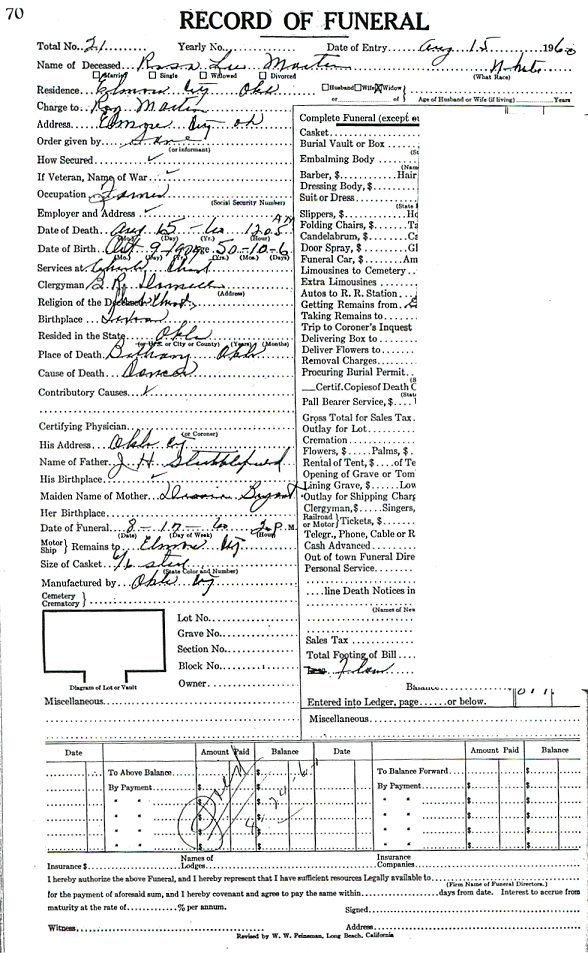 70
RECORD OF FUNERAL
Total No. 21 Yearly No. Date of Entry Aug 15 1960
Name of Deceased Rosa Lee Martin White
Married Single Widowed Divorced (What Race)
Residence Elmore City Okla Husband Wife Widow
or of Age of Husband or Wife (if living) Years
Charge to Roy Martin
Address Elmore City
Order given by Same
(or informant)
How Secured
If Veteran, Name of War
Occupation
(Social Security Number)
Employer and Address
Date of Death Aug 15 - 60 1205 AM
(Mo.) (Day) (Yr.) (Hour)
Date of Birth Oct - 9 - 1909 Age 50 - 10 - 6
(Mo.) (Day) (Yr.) (Yrs.) (Mos.) (Days)
Services at Church
Clergyman B. R.
(Address)
Religion of the Deceased
Birthplace
Resided in the State Okla
(or U.S. or City or County) (Years) (Months)
Place of Death Bethany Okla
Cause of Death Cancer
Contributory Causes
Certifying Physician
(or Coroner)
His Address Okla City
Name of Father J. H. Stubblefield
His Birthplace
Maiden Name of Mother Bryant
Her Birthplace
Date of Funeral 8 - 17 - 60 2 P. M.
(Date) (Day of Week) (Hour)
Motor Ship Remains to Elmore City
Size of Casket
(State Color and Number)
Manufactured by Okla City
Cemetery
Crematory
Diagram of Lot or Vault
Lot No.
Grave No.
Section No.
Block No.
Owner
Miscellaneous
Complete Funeral (except
Casket
Burial Vault or Box
Embalming Body
Barber, $ Hair
Dressing Body, $
Suit or Dress
Slippers, $
Folding Chairs, $
Candelabrum, $
Door Spray, $
Funeral Car, $
Limousines to Cemetery
Extra Limousines
Autos to R. R. Station
Getting Remains from
Taking Remains to
Trip to Coroner's Inquest
Delivering Box to
Deliver Flowers to
Removal Charges
Procuring Burial Permit
Certif. Copies of Death C
Pall Bearer Service, $
Gross Total for Sales Tax
Outlay for Lot
Cremation
Flowers, $ Palms, $
Rental of Tent, $ of Te
Opening of Grave or Tom
Lining Grave, $ Low
Outlay for Shipping Char
Clergyman, $ Singers,
Railroad or Motor Tickets, $
Telegr., Phone, Cable or R
Cash Advanced
Out of town Funeral Dire
Personal Service
line Death Notices in
(Names of New
Sales Tax
Total Footing of Bill
Balance
Entered into Ledger, page or below.
Miscellaneous
Date Amount Paid Balance Date Amount Paid Balance
To Above Balance $ $ To Balance Forward $ $
By Payment $ $ By Payment $ $
" " $ $ " " $ $
" " $ $ " " $ $
" " $ $ " " $ $
" " $ $ " " $ $
Insurance $ Names of Lodges Insurance Companies
I hereby authorize the above Funeral, and I hereby represent that I have sufficient resources Legally available to
(Firm Name of Funeral Directors.)
for the payment of aforesaid sum, and I hereby covenant and agree to pay the same within days from date. Interest to accrue from
maturity at the rate of % per annum. Signed
Witness Address
Revised by W. W. Feinsman, Long Beach, California